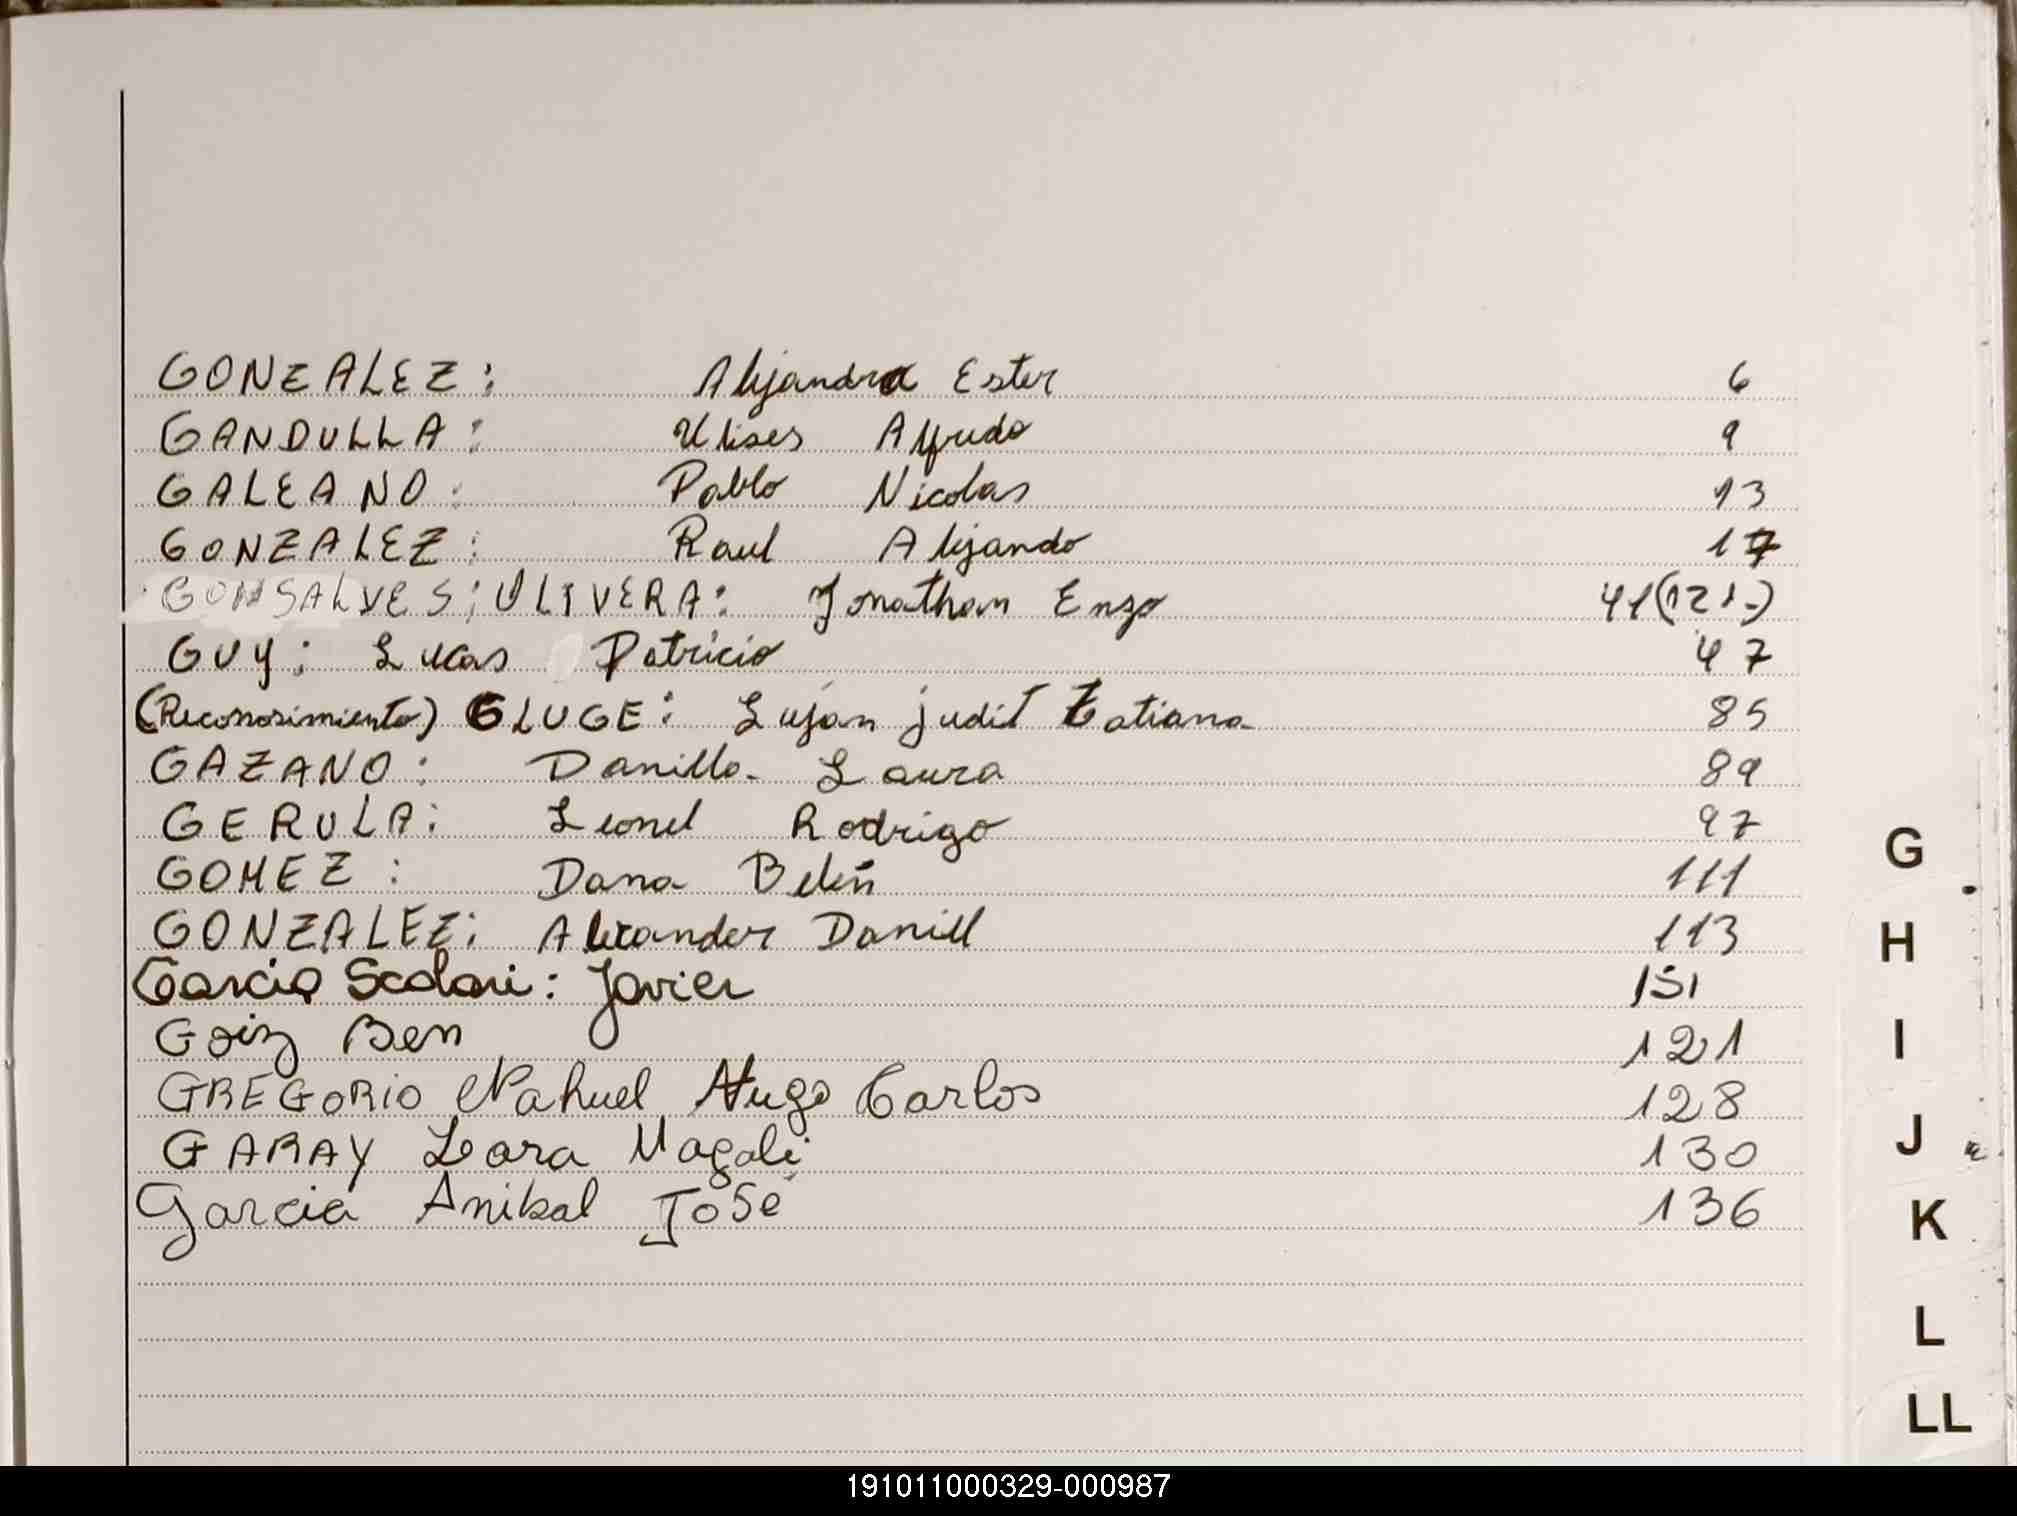 GONZALEZ: Alejandra Ester 6
GANDULLA: Ulises Alfredo 9
GALEANO: Pablo Nicolas 13
GONZALEZ: Raul Alejando 17
GONSALVES; ULIVERA: Jonathan Enzo 41(121-)
GUY: Lucas Patricio 47
(Reconosimiento) GLUGE: Lujan judit Tatiana 85
GAZANO: Danillo Laura 89
GERULA: Leonel Rodrigo 97
GOMEZ: Dana Belén 111
GONZALEZ: Alexander Daniel 113
Garcia Scolari: Javier 151
Goiz Ben 121
GREGORIO Nahuel Hugo Carlos 128
GARAY Lara Magali 130
Garcia Anibal José 136
G
H
I
J
K
L
LL
191011000329-000987